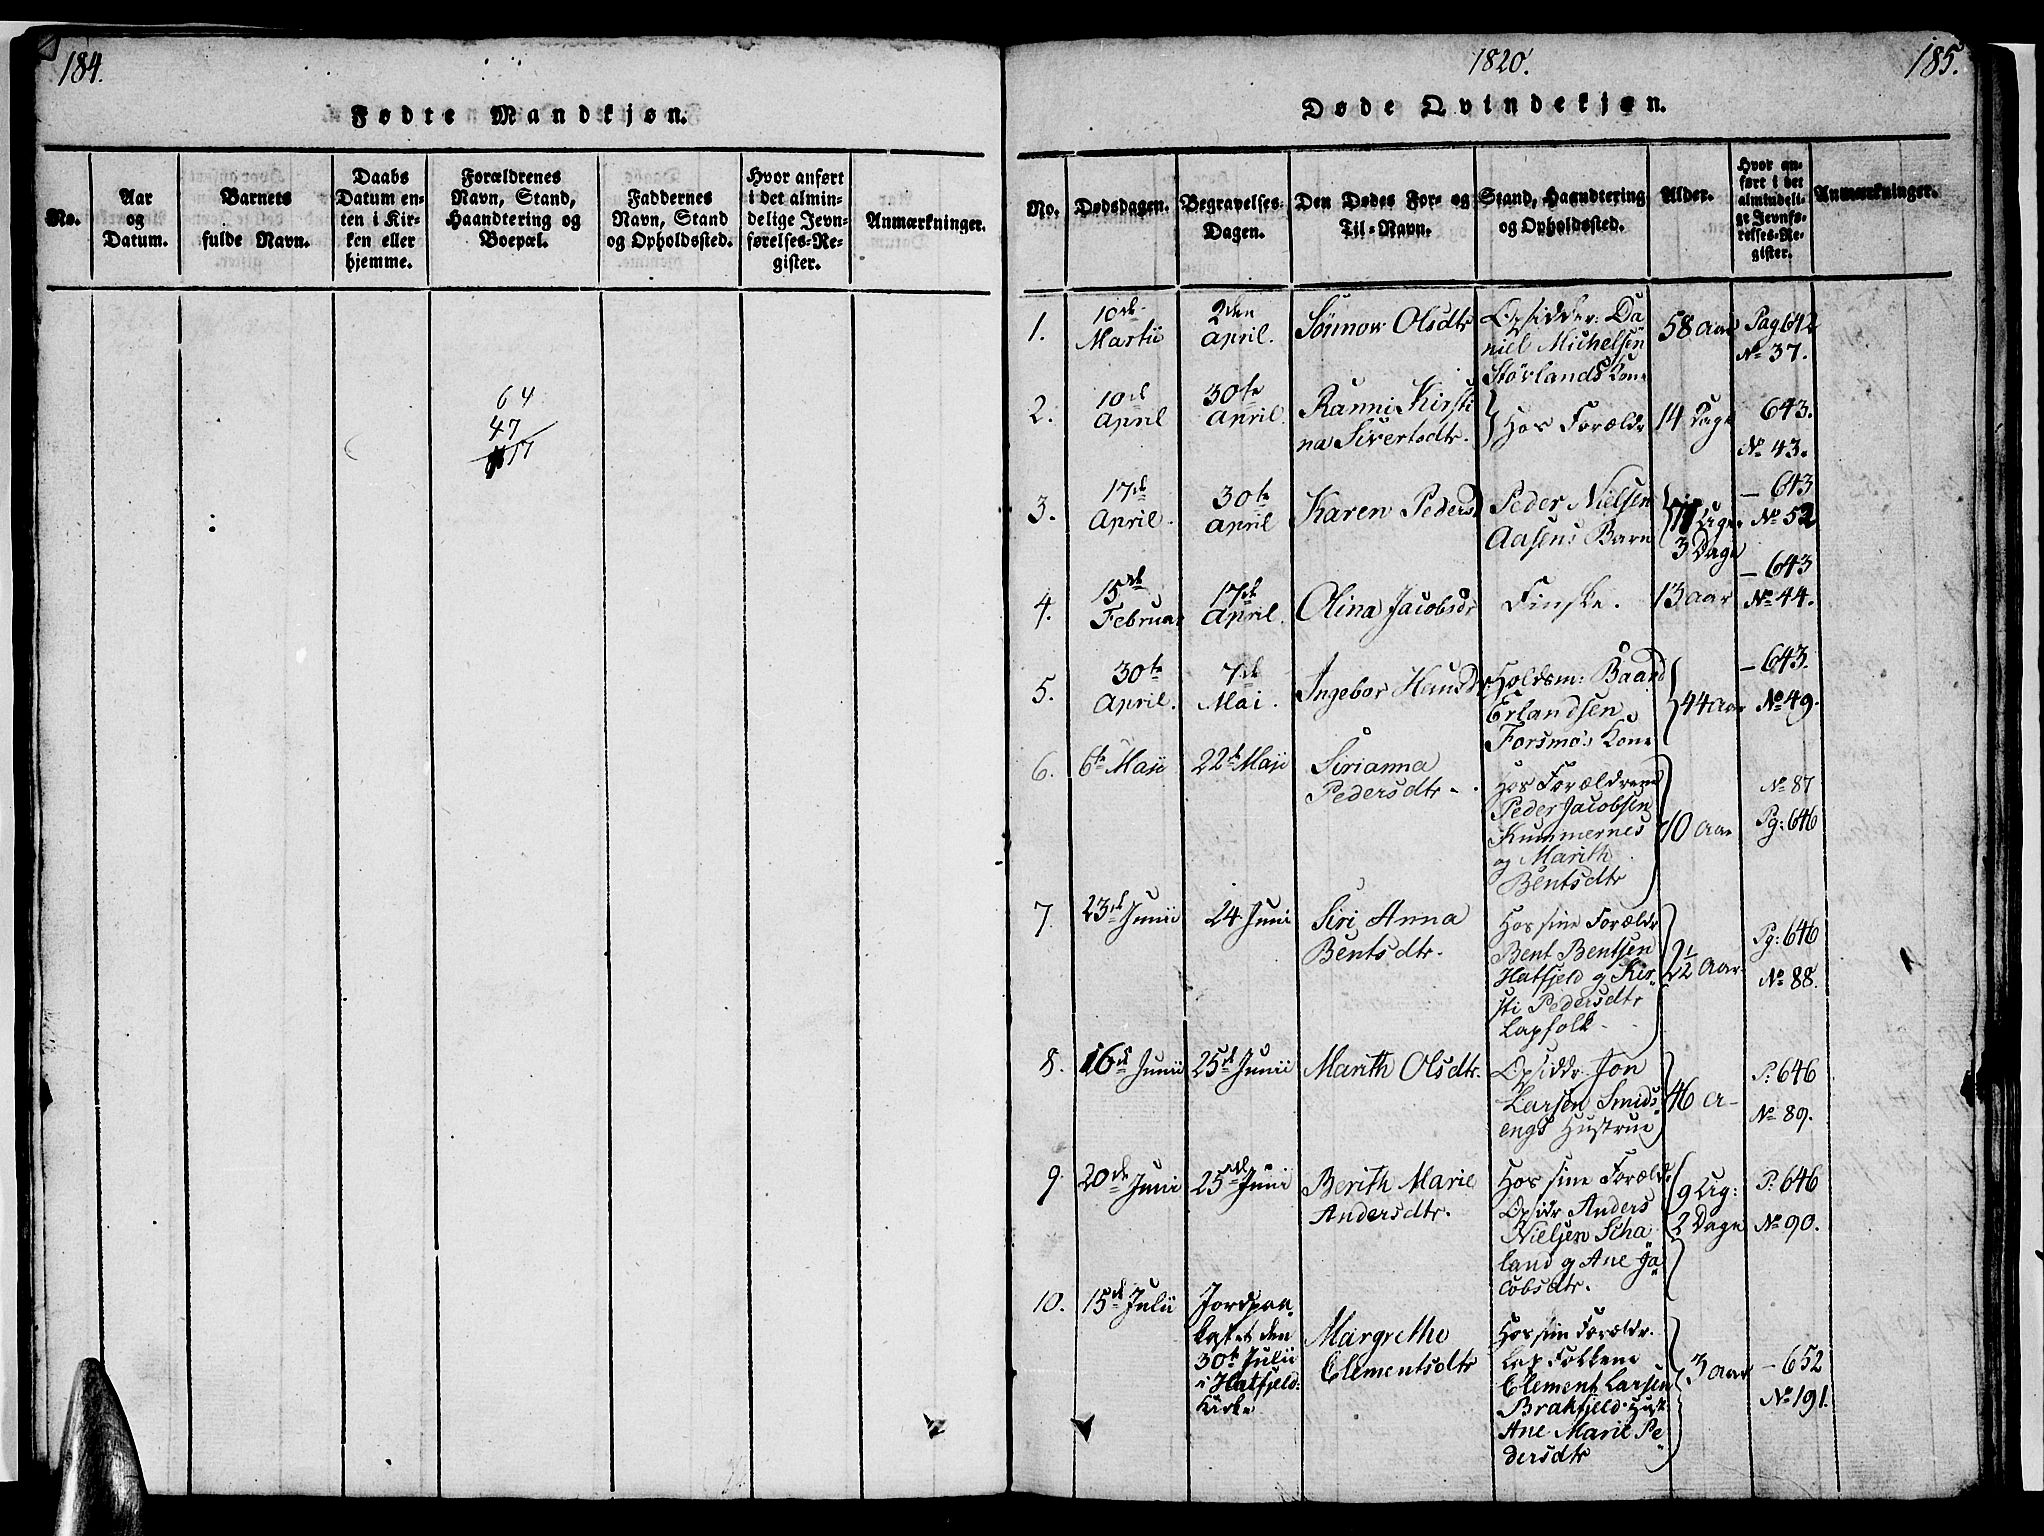 184.
Fødte Mandkjøn.
No.
Aar
og
Datum.
Barnets
fulde Navn.
Daabs
Datum en-
ten i Kir-
ken eller
hjemme.
Forældrenes
Navn, Stand,
Haandtering og
Boepæl.
Faddernes
Navn, Stand
og Opholdssted.
Hvor anført
i det almin-
delige Jevn-
førelses-Re-
gister.
Anmærkninger.
64
47
17
1820.
185.
Døde Qvindekjøn.
No.
Dødsdagen.
Begravelses-
Dagen.
Den Dødes For- og
Til-Navn.
Stand, Haandtering
og Opholdssted.
Alder.
Hvor an-
ført i det
almindeli-
ge Jevnfø-
relses-Re-
gister.
Anmærkninger.
1.
10de
Martii
2den
April.
Sünnow Olsdtr
Opsidder: Da
niel Michelsen
Störlands Kone
58 Aar
Pag 642
No 37.
2.
10de
April
30te
April.
Ranni Kirsti
na Sivertsdtr.
Hos Forældr
14 Dage
643.
No 43.
3.
17de
April.
30te
April
Karen Pedersd
Peder Nielsen
Aasens Barn
Uger
3 Dage
- 643
No 52
4.
15de
Februar
17de
April.
Olina Jacobsdr
Finske.
13 Aar
- 643
No 44.
5.
30te
April.
7de
Mai.
Ingebor Hansdr
Holdsm: Baard
Erlandsen
Forsmo's Kone
44 Aar
- 643.
No 49.
6.
6te Maji
22de Maji
Sirianna
Pedersdtr.
Hos Forældrene
Peder Jacobsen
Kummernes
og Marith
Bentsdtr
10 Aar
No 87
Pg: 646
7.
23de Junii
24 Juni
Siri Anna
Bentsdtr.
Hos sine Forældr
Bent Bentsen
Hatfjeld og Kir-
sti Pedersdtr
Lapfolk.
2 1/2 Aar
Pg: 646
No 88.
8.
16de Junii
25de Junii
Marith Olsdtr.
Opsiddr. Jon
Larsen Smids-
engs Hustrue
46 A-
P: 646
No 89.
9.
20de Juni
25de Juni
Berith Marie
Andersdtr.
Hos sine Foræld.
Opsidr Anders
Nielsen Scha
land og Ane Ja-
cobsdtr.
9 Ug:
2 Dage
P: 646
No 90.
10.
15de Julii
Jordpaa-
kastet den
30te Julii
i Hatfjeld-
Kirke
Margrethe
Clementsdtr
Hos sine Forældr.
Lap Folkene
Clement Larsen
Brakfjeld Hust.
Ane Marie Pe-
dersdtr
3 Aar
- 652
No 191.